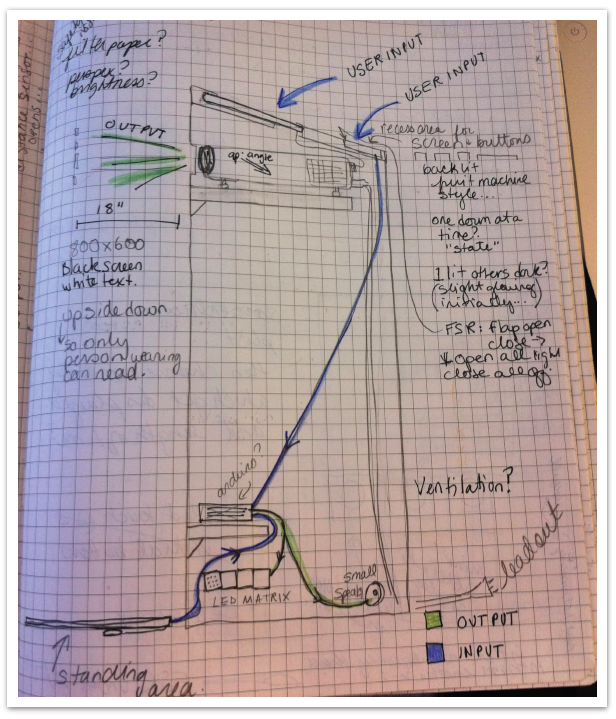 filter paper?
proper?
brightness?
OUTPUT
18"
800x600
Black screen
white text.
upside down
so only
person wearing
can read.
USER INPUT
USER INPUT
recess area for
screen + buttons
backlit
print machine
style...
one down at a
time?
"state"
1 lit others dark?
(slight glowing
initially...)
FSR: flap open
close →
↓ open all light
close all off.
op: angle
arduino?
Ventilation?
LED MATRIX
small
lead out
OUTPUT
INPUT
standing
area.